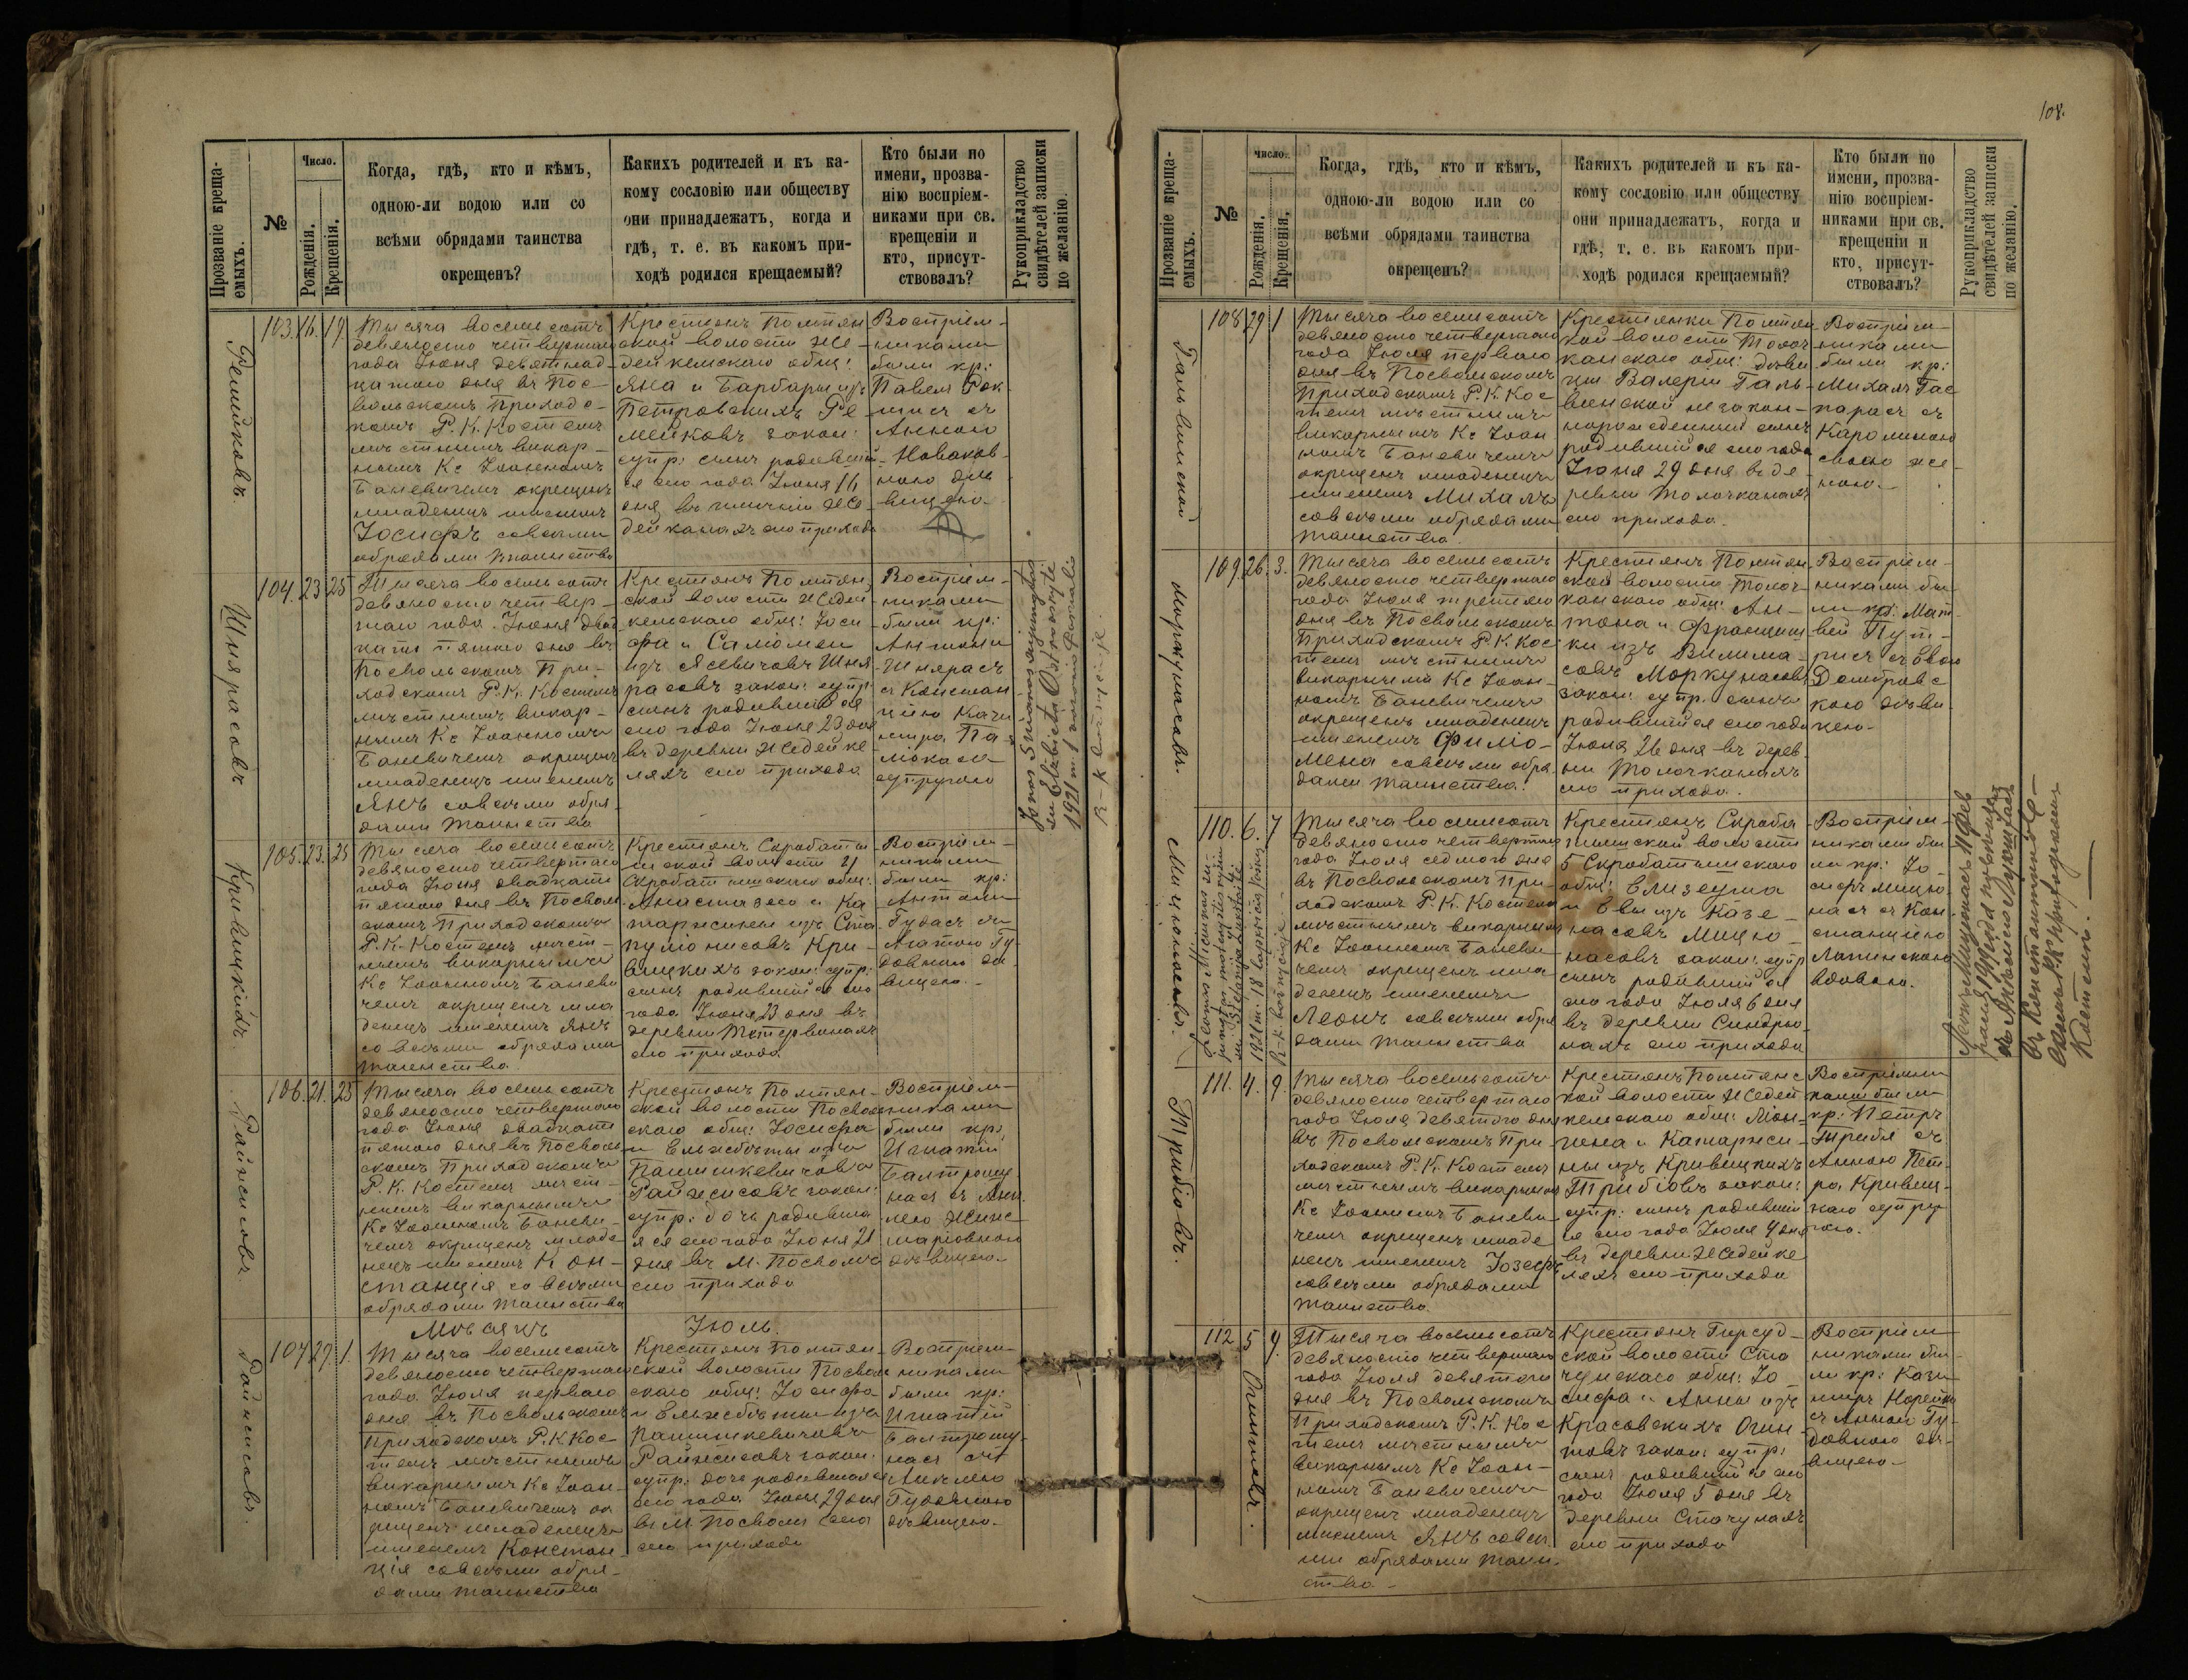 108.
Прозваніе креща-
емыхъ.
№
Число.
Рожденія.
Крещенія.
Когда, гдѣ, кто и кѣмъ,
одною-ли водою или со
всѣми обрядами таинства
окрещенъ?
Какихъ родителей и къ ка-
кому сословію или обществу
они принадлежатъ, когда и
гдѣ, т. е. въ какомъ при-
ходѣ родился крещаемый?
Кто были по
имени, прозва-
нію воспріем-
никами при св.
крещеніи и
кто, присут-
ствовалъ?
Рукоприкладство
свидѣтелей записки
по желанію.
103. 16. 19.
Тысяча восемьсотъ
девяносто четвертаго
года Іюня девятнад-
цатаго дня въ Пос-
вольскомъ Приходс-
комъ Р. К. Костелѣ
мѣстнымъ викар-
нымъ Кс Іоанномъ
Баневичемъ окрещенъ
младенецъ именемъ
Іосифъ со всѣми
обрядами таинства
Крестьянъ Помпян
ской волости Же-
дейкемскаго общ:
Яна и Барбары изъ
Петровскихъ Ре-
мейковъ закон:
супр: сынъ родившій-
ся сего года Іюня 16
дня въ
сего прихода
Воспріем-
никами
были кр:
Павелъ
съ
Анною
Новаков-
ною дѣ-
вицею.
Шнярасовъ
104. 23 25
Тысяча восемьсотъ
девяносто четвер-
таго года Іюня двад
цать пятаго дня въ
Посвольскомъ При-
ходскомъ Р. К. Костелѣ
мѣстнымъ викар-
нымъ Кс Іоанномъ
Баневичемъ окрещенъ
младенецъ именемъ
Янъ со всѣми обря-
дами таинства
Крестьянъ Помпян
ской волости Жедей
кемскаго общ: Іоси
фа и Саломеи
изъ Ясевичовъ Шня
расовъ закон: супр:
сынъ родившійся
сего года Іюня 23 дня
въ деревни Жедейке
ляхъ сего прихода
Воспріем-
никами
были кр:
Антони
Шнярасъ
съ Констан
ціею Кази
мира
супругою
Jonas Šniaras sujungtas
su Elzbieta
1921 m. 1
R-K bažnyčioje.
Кривицкихъ.
105. 23. 25
Тысяча восемьсотъ
девяносто четвертаго
года Іюня двадцать
пятаго дня въ Посволь
скомъ Приходскомъ
Р. К. Костелѣ мѣст-
нымъ викарнымъ
Кс Іоанномъ Баневи
чемъ окрещенъ мла
денецъ именемъ Янъ
со всѣми обрядами
таинства
Крестьянъ Скробаты
шской волости
Скробатишскаго общ:
Анастазего и Ка
таржины изъ Ста
пулионисовъ Кри-
вицкихъ закон: супр:
сынъ родившійся сего
года Іюня 23 дня въ
деревни
сего прихода
Воспріем-
никами
были кр:
Антони
Гудасъ съ
Агатою Гу-
довною дѣ-
вицею.
Райжисовъ
106. 21. 25
Тысяча восемьсотъ
девяносто четвертаго
года Іюня двадцать
пятаго дня въ Посволь
скомъ Приходскомъ
Р. К. Костелѣ мѣст-
нымъ викарнымъ
Кс Іоанномъ Баневи-
чемъ окрещенъ младе
нецъ именемъ Кон-
станція со всѣми
обрядами таинства
Крестьянъ Помпян-
ской волости Посволь
скаго общ: Іосифа
и Ельжбѣты изъ
Пашкевичовъ
Райжисовъ закон:
супр: дочь родивша
яся сего года Іюня 21
дня въ М. Посволѣ
сего прихода
Воспріем-
никами
были кр:
Игнатій
Балтрошу
насъ съ
дѣвицею.
Мѣсяцъ Іюль.
Райжисовъ.
107 29. 1.
Тысяча восемьсотъ
девяносто четвертаго
года Іюля перваго
дня въ Посвольскомъ
Приходскомъ Р. К Кос-
телѣ мѣстнымъ
викарнымъ Кс Іоан-
номъ Баневичемъ ок
рещенъ младенецъ
именемъ Констан-
ція со всѣми обря-
дами таинства
Крестьянъ Помпян-
ской волости Посволь
скаго общ: Іосифа
и Ельжбѣты изъ
Пашкевичовъ
Райжисовъ закон:
супр: дочь родившаяся
сего года Іюня 29 дня
въ М. Посволѣ
сего прихода
Воспріем-
никами
были кр:
Игнатій
Балтрошу-
насъ съ
дѣвицею.
Прозваніе креща-
емыхъ.
№
Число.
Рожденія.
Крещенія.
Когда, гдѣ, кто и кѣмъ,
одною-ли водою или со
всѣми обрядами таинства
окрещенъ?
Какихъ родителей и къ ка-
кому сословію или обществу
они принадлежатъ, когда и
гдѣ, т. е. въ какомъ при-
ходѣ родился крещаемый?
Кто были по
имени, прозва-
нію воспріем-
никами при св.
крещеніи и
кто, присут-
ствовалъ?
Рукоприкладство
свидѣтелей записки
по желанію.
108 29 1
Тысяча восемьсотъ
девяносто четвертаго
года Іюля перваго
дня въ Посвольскомъ
Приходскомъ Р. К. Кос
телѣ мѣстнымъ
викарнымъ Кс Іоан
номъ Баневичемъ
окрещенъ младенецъ
именемъ Михалъ
со всѣми обрядами
таинства.
Крестьянки Помпян
кой волости Толоч
канскаго общ: дѣви
цы Валеріи Галь-
винской незакон-
норожденный сынъ
родившійся сего года
Іюня 29 дня въ де
ревни Толочканахъ
сего прихода.
Воспріем-
никами
были кр:
Михалъ Гас
парасъ съ
Каролиною
своею же-
ною.
Моркунасовъ.
109. 26. 3.
Тысяча восемьсотъ
девяносто четвертаго
года Іюля третьяго
дня въ Посвольскомъ
Приходскомъ Р. К. Кос
телѣ мѣстнымъ
викарнымъ Кс Іоан-
номъ Баневичемъ
окрещенъ младенецъ
именемъ Филіо-
мена со всѣми обря
дами таинства.
Крестьянъ Помпян
ской волости Толоч-
канскаго общ: Ан-
тона и Францишки
изъ Вилима-
совъ Моркунасовъ
закон: супр. сынъ
родившійся сего года
Іюня 26 дня въ дерев
ни Толочканахъ
сего прихода.
Воспріем-
никами бы-
ли кр: Мат
вей
съ Евою
Домбровс
кою дѣви
цею.
Мицюнасовъ.
110. 6. 7
Тысяча восемьсотъ
девяносто четвертаго
года Іюля седмого дня
въ Посвольскомъ При-
ходскомъ Р. К. Костелѣ
мѣстнымъ викарнымъ
Кс Іоанномъ Баневи
чемъ окрещенъ мла
денецъ именемъ
Леонъ со всѣми обря
дами таинства
Крестьянъ Скробы
тишской волости
5 Скробатишскаго
общ: Елизеуша
и Евы изъ Казе-
насовъ Мицю-
насовъ закон: супр
сынъ родившійся
сего года Іюля 6 дня
въ деревни Синдрю-
нахъ сего прихода
Воспріем-
никами бы
ли кр: Іо
сифъ Мицю
насъ съ Кон
станціею
вдовою.
111. 4. 9.
Тысяча восемьсотъ
девяносто четвертаго
года Іюля девятого дня
въ Посвольскомъ При
ходскомъ Р. К. Костелѣ
мѣстнымъ викарнымъ
Кс Іоанномъ Баневи
чемъ окрещенъ младе
нецъ именемъ Іозефъ
со всѣми обрядами
таинства
Крестьянъ Помпянс
кой волости Жедей
кемскаго общ:
и Катаржи-
ны изъ Кривицкихъ
Трибіовъ закон:
супр: сынъ родившій
ся сего года Іюля 4 дня
въ деревни Жедейке
ляхъ сего прихода
Воспріемни
ками были
кр: Петръ
Трибя съ
Анною Пет-
ра Кривиц-
каго супру
гою.
Трибіовъ.
112 5 9.
Тысяча восемьсотъ
девяносто четвертаго
года Іюля девятаго
дня въ Посвольскомъ
Приходскомъ Р. К. Кос
телѣ мѣстнымъ
викарнымъ Кс Іоан-
номъ Баневичемъ
окрещенъ младенецъ
именемъ Янъ со всѣ
ми обрядами таин-
ства
Крестьянъ Гирсуд-
ской волости Ста
чунскаго общ: Іо-
сифа и Анны изъ
Красовскихъ Очин-
совъ закон: супр:
сынъ родившійся сего
года Іюля 5 дня въ
деревни Стачунахъ
сего прихода
Воспріем-
никами бы-
ли кр: Кази
миръ Норейко
съ Анною Гу-
довною дѣ-
вицею.